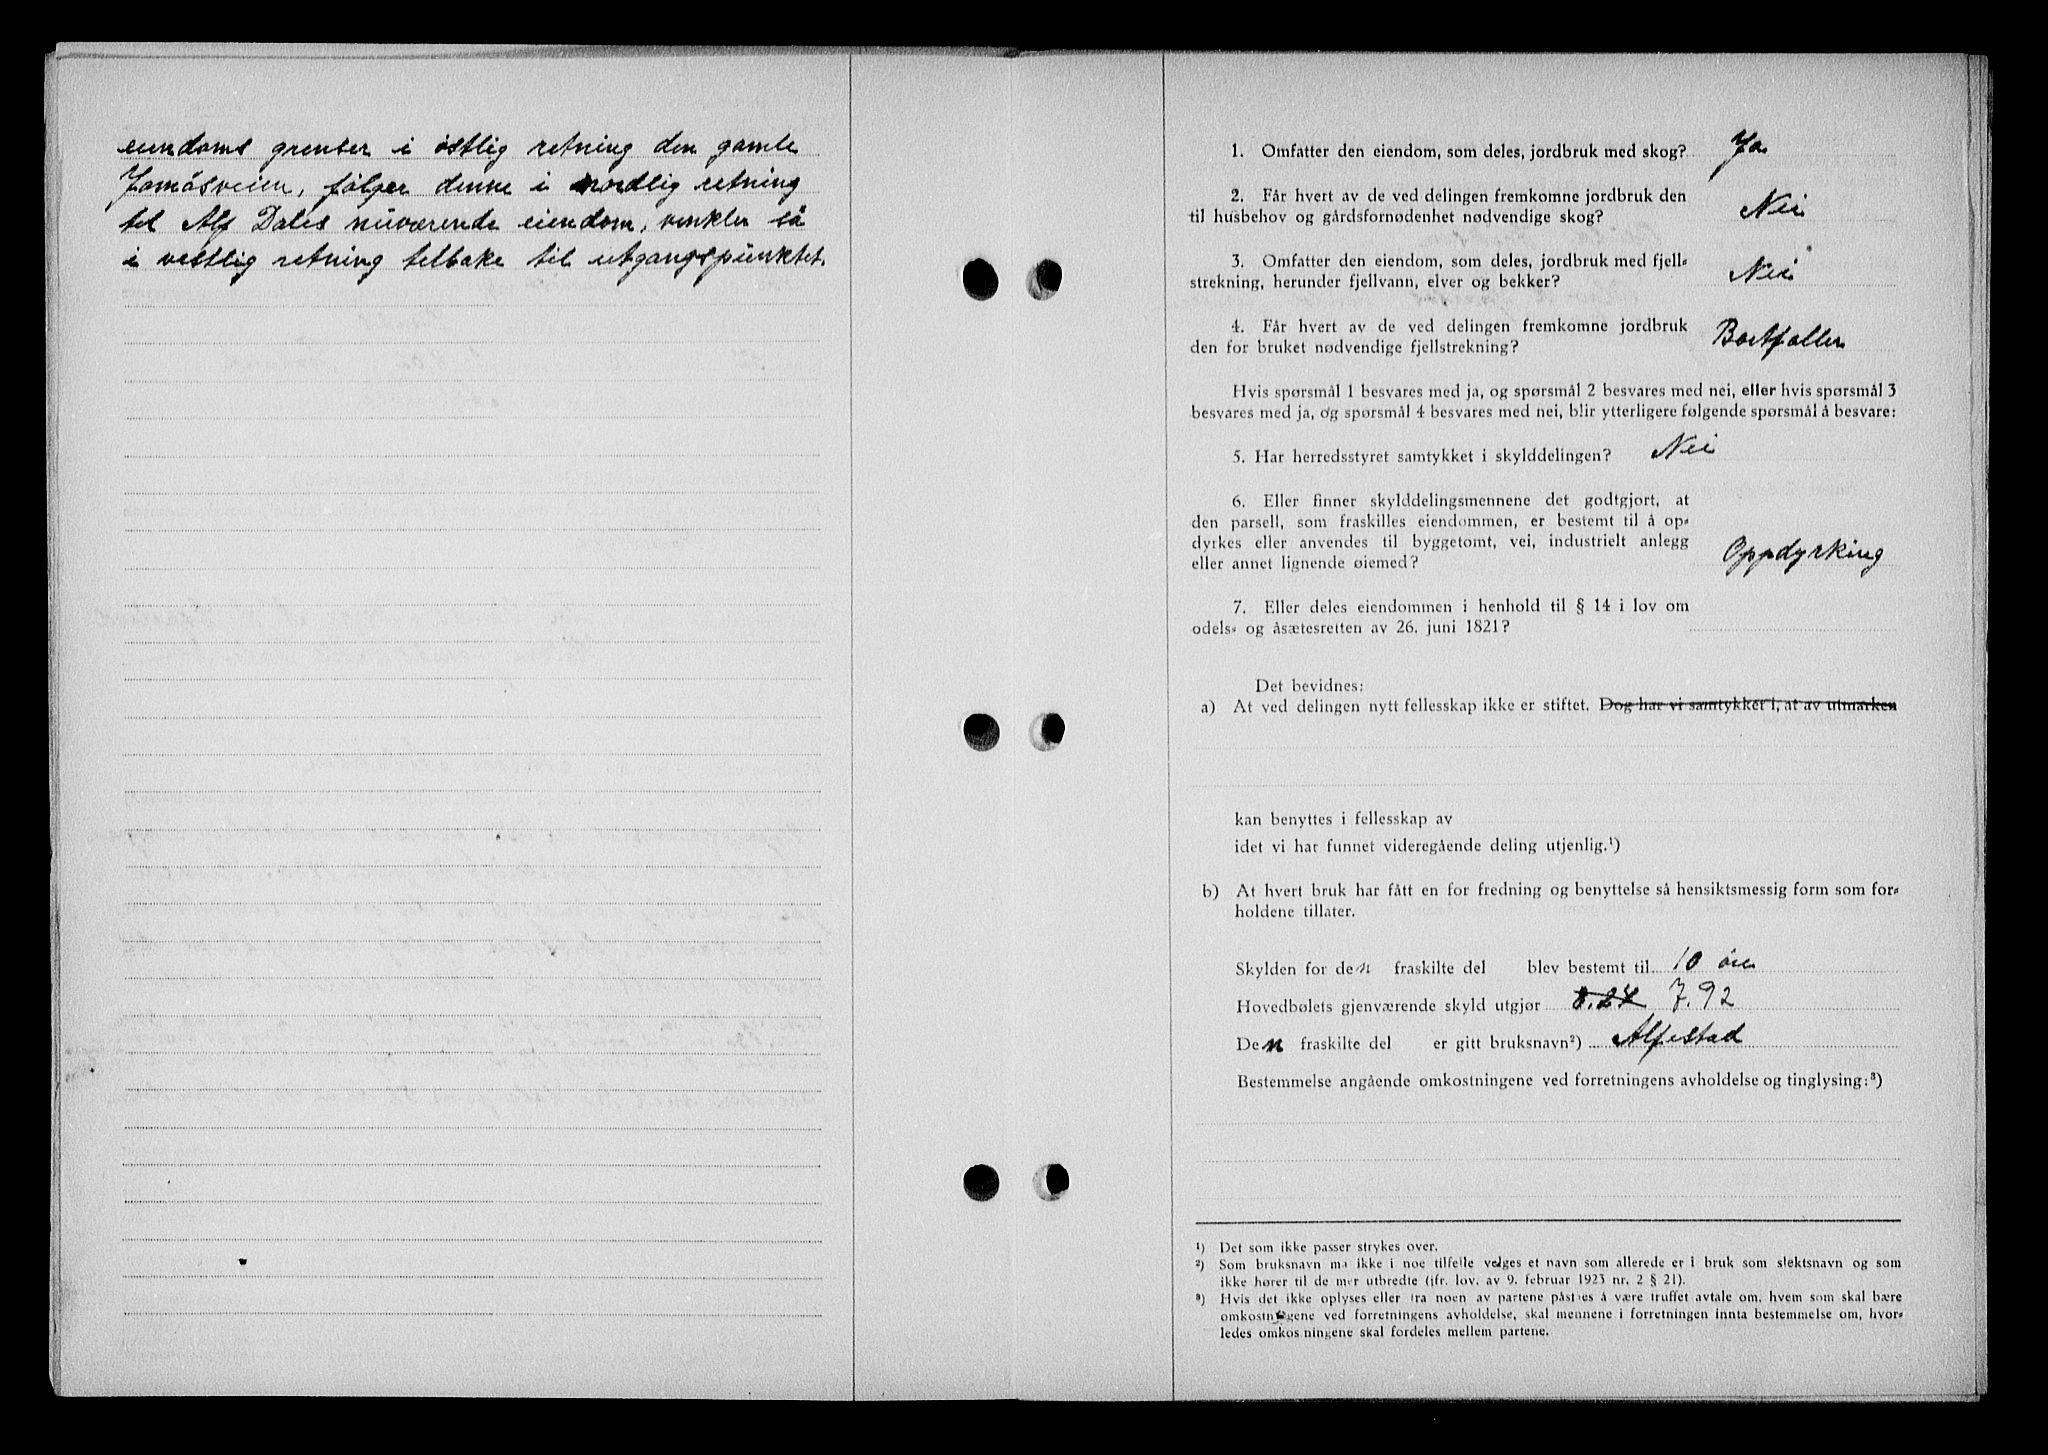 eiendoms grenser i östlig retning den gamle
Jomåsveien, fölger denne i nordlig retning
til Alf Dales nuværende eiendom, vinkler så
i vestlig retning tilbake til utgangspunktet.
1. Omfatter den eiendom, som deles, jordbruk med skog? Ja
2. Får hvert av de ved delingen fremkomne jordbruk den
til husbehov og gårdsfornødenhet nødvendige skog? Nei
3. Omfatter den eiendom, som deles, jordbruk med fjell-
strekning, herunder fjellvann, elver og bekker? Nei
4. Får hvert av de ved delingen fremkomne jordbruk
den for bruket nødvendige fjellstrekning? Bortfaller
Hvis spørsmål 1 besvares med ja, og spørsmål 2 besvares med nei, eller hvis spørsmål 3
besvares med ja, og spørsmål 4 besvares med nei, blir ytterligere følgende spørsmål å besvare:
5. Har herredsstyret samtykket i skylddelingen? Nei
6. Eller finner skylddelingsmennene det godtgjort, at
den parsell, som fraskilles eiendommen, er bestemt til å op-
dyrkes eller anvendes til byggetomt, vei, industrielt anlegg
eller annet lignende øiemed? Oppdyrking
7. Eller deles eiendommen i henhold til § 14 i lov om
odels- og åsætesretten av 26. juni 1821?
Det bevidnes:
a) At ved delingen nytt fellesskap ikke er stiftet. Dog har vi samtykket i, at av utmarken
kan benyttes i fellesskap av
idet vi har funnet videregående deling utjenlig.¹)
b) At hvert bruk har fått en for fredning og benyttelse så hensiktsmessig form som for-
holdene tillater.
Skylden for den fraskilte del blev bestemt til 10 öre
Hovedbølets gjenværende skyld utgjør 8.24 7.92
Den fraskilte del er gitt bruksnavn²) Alfestad
Bestemmelse angående omkostningene ved forretningens avholdelse og tinglysing:³)
¹) Det som ikke passer strykes over.
²) Som bruksnavn må ikke i noe tilfelle velges et navn som allerede er i bruk som slektsnavn og som
ikke hører til de mer utbredte (jfr. lov. av 9. februar 1923 nr. 2 § 21).
³) Hvis det ikke oplyses eller fra noen av partene påståes å være truffet avtale om, hvem som skal bære
omkostningene ved forretningens avholdelse, skal mennene i forretningen innta bestemmelse om, hvor-
ledes omkostningene skal fordeles mellem partene.